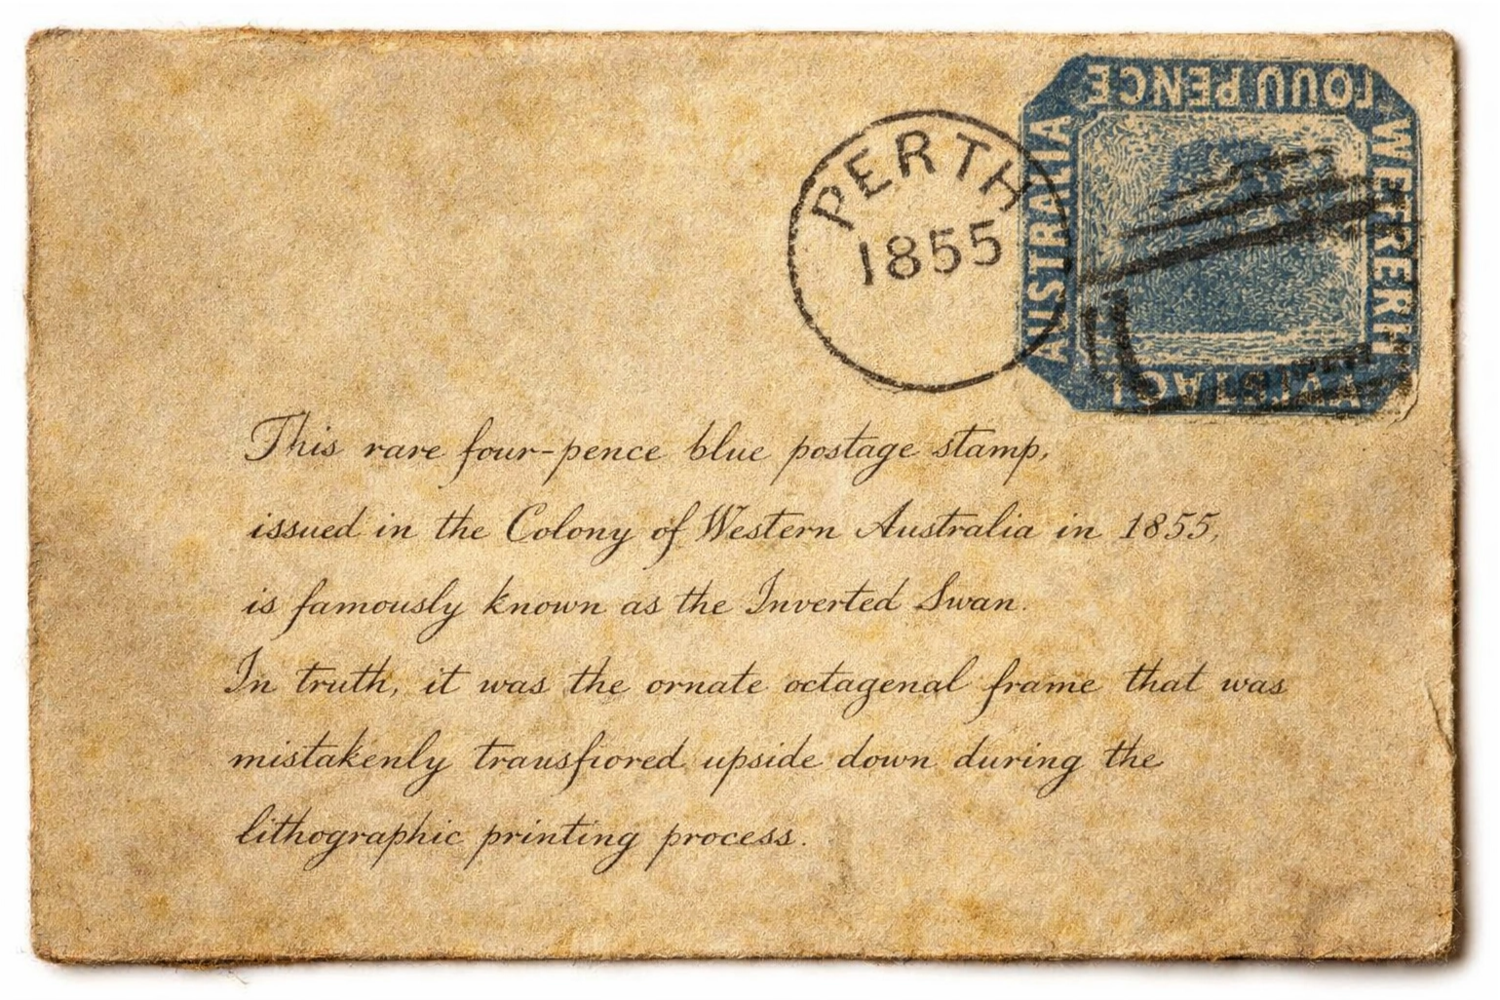 PENCE
PERTH
1855
This rare four-pence blue postage stamp,
issued in the Colony of Western Australia in 1855,
is famously known as the Inverted Swan.
In truth, it was the ornate octagenal frame that was
mistakenly trausfiored upside down during the
lithographic printing process.